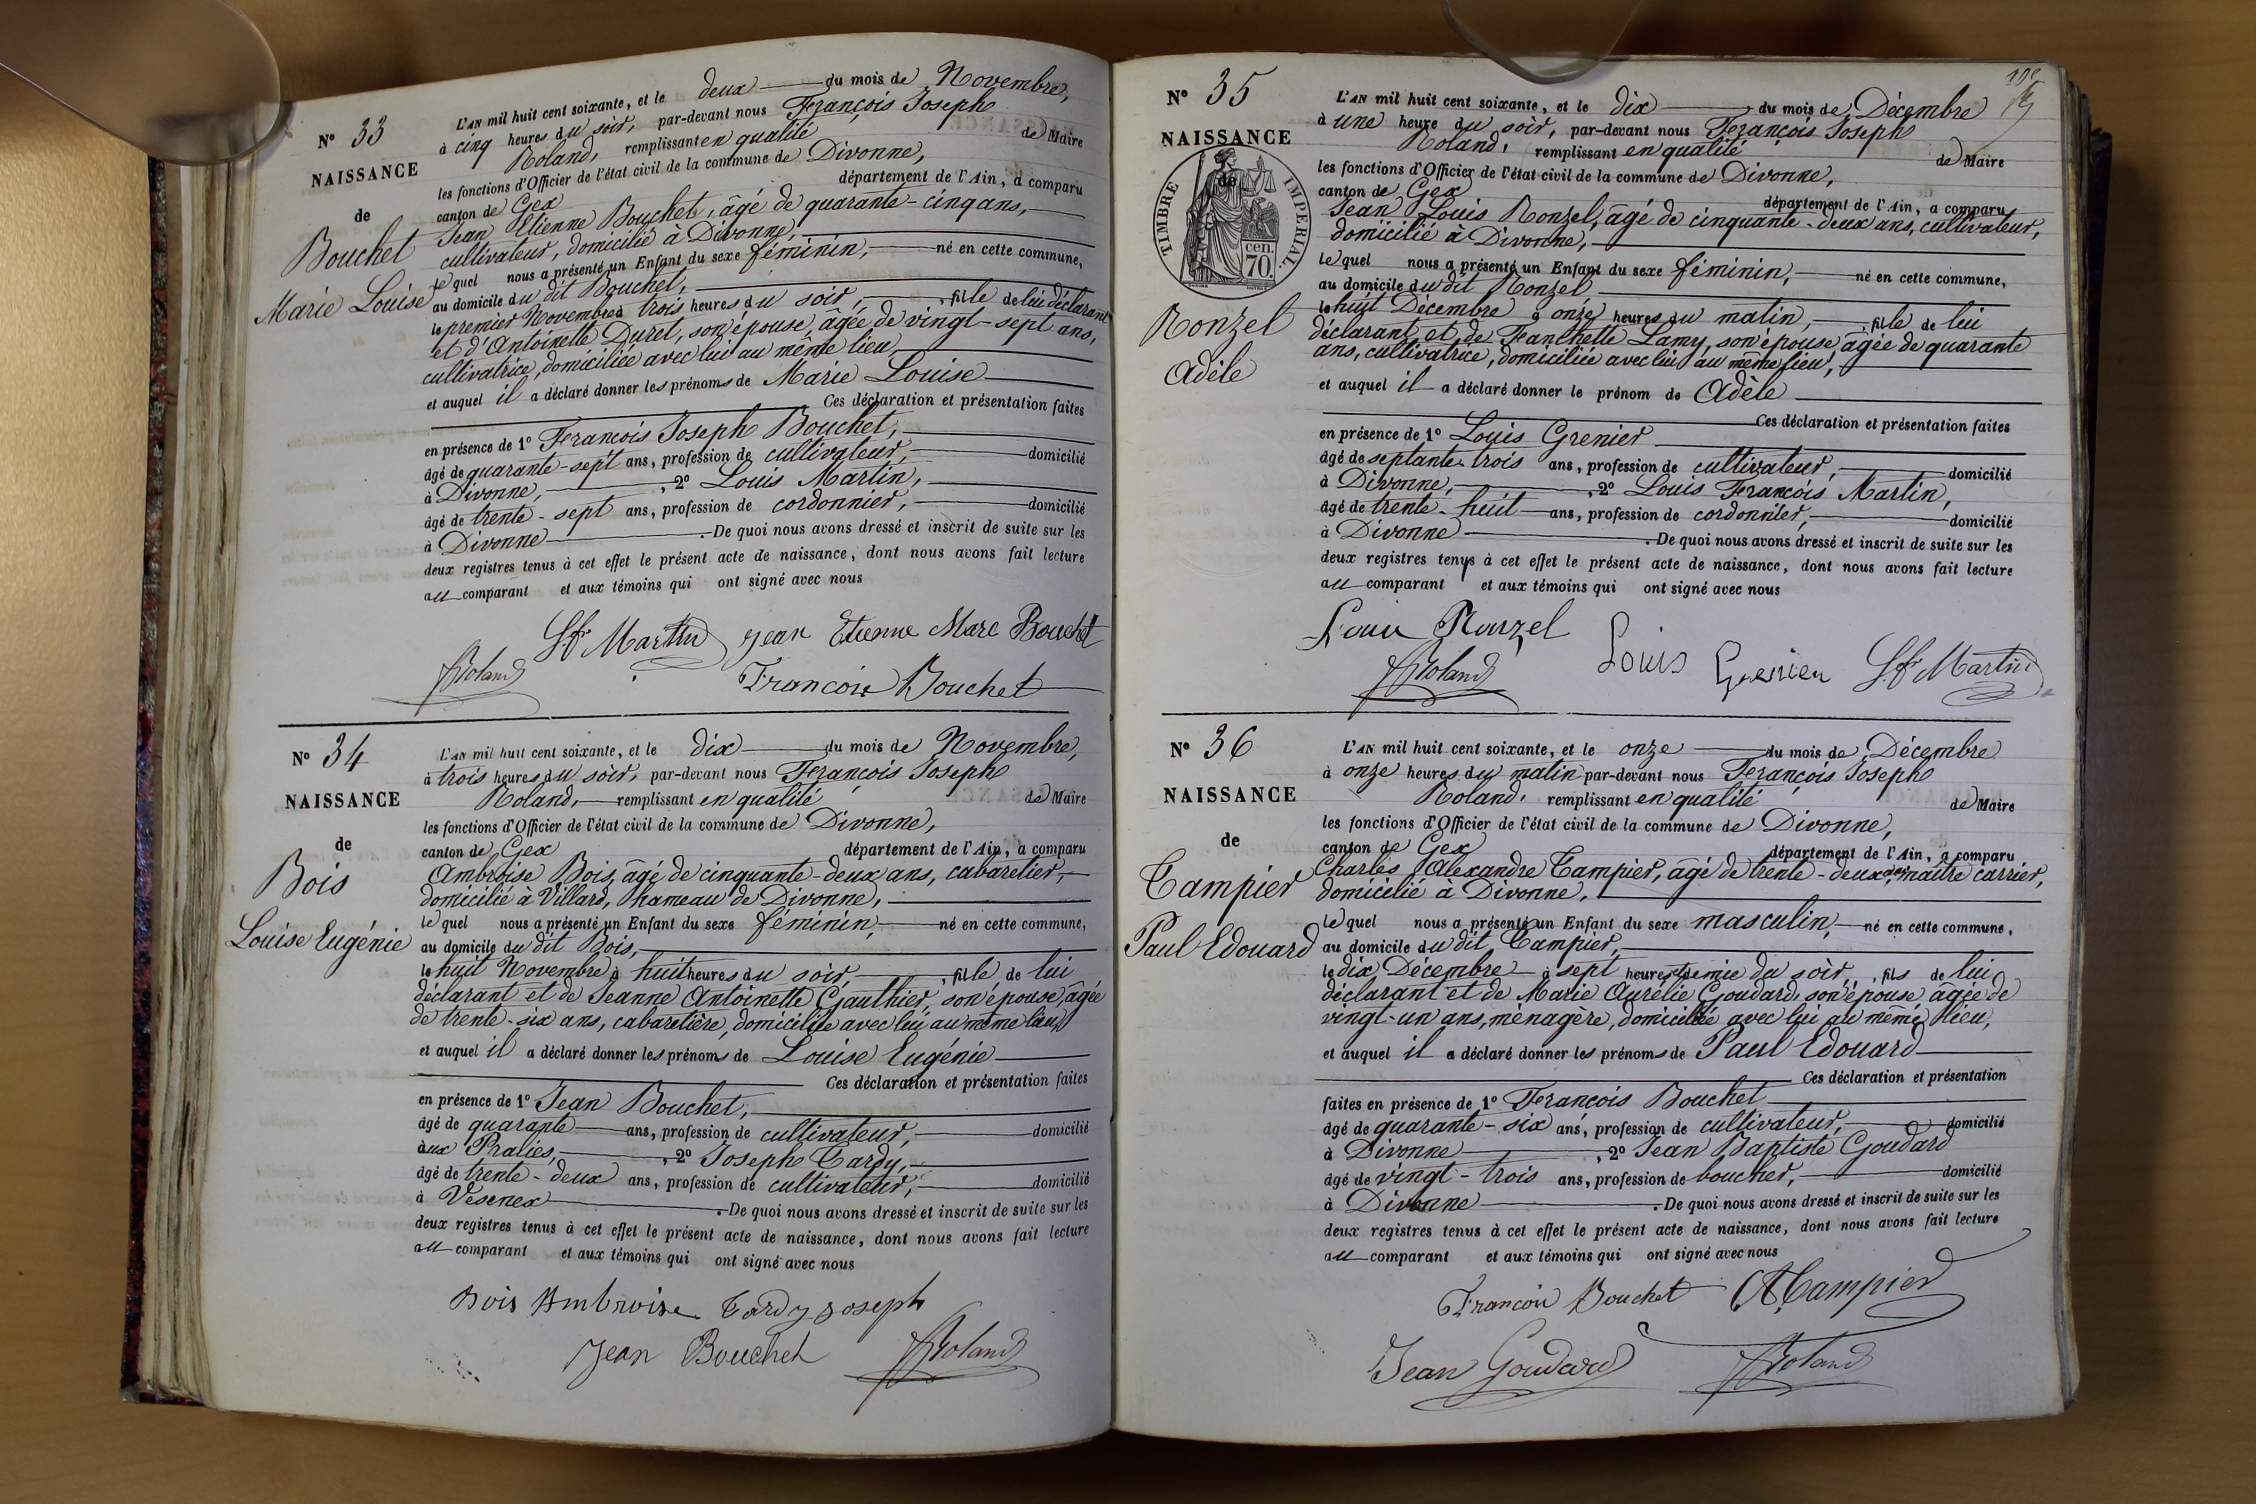 N° 33
NAISSANCE
de
Bouchet
Marie Louise
L'AN mil huit cent soixante, et le deux du mois de Novembre,
à cinq heures du soir, par-devant nous François Joseph
Roland, remplissant en qualité de Maire
les fonctions d'Officier de l'état civil de la commune de Divonne,
canton de Gex département de l'Ain, a comparu
Jean Etienne Bouchet, âgé de quarante-cinq ans,
cultivateur, domicilié à Divonne,
lequel nous a présenté un Enfant du sexe féminin, né en cette commune,
au domicile du dit Bouchet,
le premier Novembre à trois heures du soir, fille de lui déclarant
et d'Antoinette Duret, son épouse, âgée de vingt-sept ans,
cultivatrice, domiciliée avec lui au même lieu,
et auquel il a déclaré donner les prénoms de Marie Louise
Ces déclaration et présentation faites
en présence de 1° François Joseph Bouchet,
âgé de quarante-sept ans, profession de cultivateur, domicilié
à Divonne, , 2° Louis Martin,
âgé de trente-sept ans, profession de cordonnier, domicilié
à Divonne . De quoi nous avons dressé et inscrit de suite sur les
deux registres tenus à cet effet le présent acte de naissance, dont nous avons fait lecture
au comparant et aux témoins qui ont signé avec nous
Lfs Martin Jean Etienne Marc Bouchet
JRoland François Bouchet
N° 34
NAISSANCE
de
Bois
Louise Eugénie
L'AN mil huit cent soixante, et le dix du mois de Novembre,
à trois heures du soir, par-devant nous François Joseph
Roland, remplissant en qualité de Maire
les fonctions d'Officier de l'état civil de la commune de Divonne,
canton de Gex département de l'Ain, a comparu
Ambroise Bois, âgé de cinquante-deux ans, cabaretier,
domicilié à Villard, hameau de Divonne,
lequel nous a présenté un Enfant du sexe féminin, né en cette commune,
au domicile du dit Bois,
le huit Novembre à huit heures du soir, fille de lui
déclarant et de Jeanne Antoinette Gauthier, son épouse, âgée
de trente-six ans, cabaretière, domiciliée avec lui au même lieu,
et auquel il a déclaré donner les prénoms de Louise Eugénie
Ces déclaration et présentation faites
en présence de 1° Jean Bouchet,
âgé de quarante ans, profession de cultivateur, domicilié
aux Pralies, , 2° Joseph Tardy,
âgé de trente-deux ans, profession de cultivateur, domicilié
à Vesenex . De quoi nous avons dressé et inscrit de suite sur les
deux registres tenus à cet effet le présent acte de naissance, dont nous avons fait lecture
au comparant et aux témoins qui ont signé avec nous
Bois Ambroise Tardy Joseph
Jean Bouchet JRoland
N° 35
NAISSANCE
de
TIMBRE IMPERIAL
cen.
70.
Ronzel
Adèle
L'AN mil huit cent soixante, et le dix du mois de Décembre
à une heure du soir, par-devant nous François Joseph
Roland, remplissant en qualité de Maire
les fonctions d'Officier de l'état civil de la commune de Divonne,
canton de Gex département de l'Ain, a comparu
Jean Louis Ronzel, âgé de cinquante-deux ans, cultivateur,
domicilié à Divonne,
lequel nous a présenté un Enfant du sexe féminin, né en cette commune,
au domicile du dit Ronzel
le huit Décembre à onze heures du matin, fille de lui
déclarant et de Fanchette Lamy, son épouse, âgée de quarante
ans, cultivatrice, domiciliée avec lui au même lieu,
et auquel il a déclaré donner le prénom de Adèle
Ces déclaration et présentation faites
en présence de 1° Louis Grenier
âgé de septante-trois ans, profession de cultivateur, domicilié
à Divonne, , 2° Louis François Martin,
âgé de trente-huit ans, profession de cordonnier, domicilié
à Divonne . De quoi nous avons dressé et inscrit de suite sur les
deux registres tenus à cet effet le présent acte de naissance, dont nous avons fait lecture
au comparant et aux témoins qui ont signé avec nous
Louis Ronzel
JRoland Louis Grenier Lfs Martin
N° 36
NAISSANCE
de
Tampier
Paul Edouard
L'AN mil huit cent soixante, et le onze du mois de Décembre
à onze heures du matin par-devant nous François Joseph
Roland, remplissant en qualité de Maire
les fonctions d'Officier de l'état civil de la commune de Divonne,
canton de Gex département de l'Ain, a comparu
Charles Alexandre Tampier, âgé de trente-deux ans, maître carrier,
domicilié à Divonne,
lequel nous a présenté un Enfant du sexe masculin, né en cette commune,
au domicile du dit Tampier,
le dix Décembre à sept heures et demie du soir, fils de lui
déclarant et de Marie Aurélie Goudard, son épouse, âgée de
vingt-un ans, ménagère, domiciliée avec lui au même lieu,
et auquel il a déclaré donner les prénoms de Paul Edouard
Ces déclaration et présentation
faites en présence de 1° François Bouchet
âgé de quarante-six ans, profession de cultivateur, domicilié
à Divonne , 2° Jean Baptiste Goudard
âgé de vingt-trois ans, profession de boucher, domicilié
à Divonne . De quoi nous avons dressé et inscrit de suite sur les
deux registres tenus à cet effet le présent acte de naissance, dont nous avons fait lecture
au comparant et aux témoins qui ont signé avec nous
François Bouchet CATampier
Jean Goudard JRoland